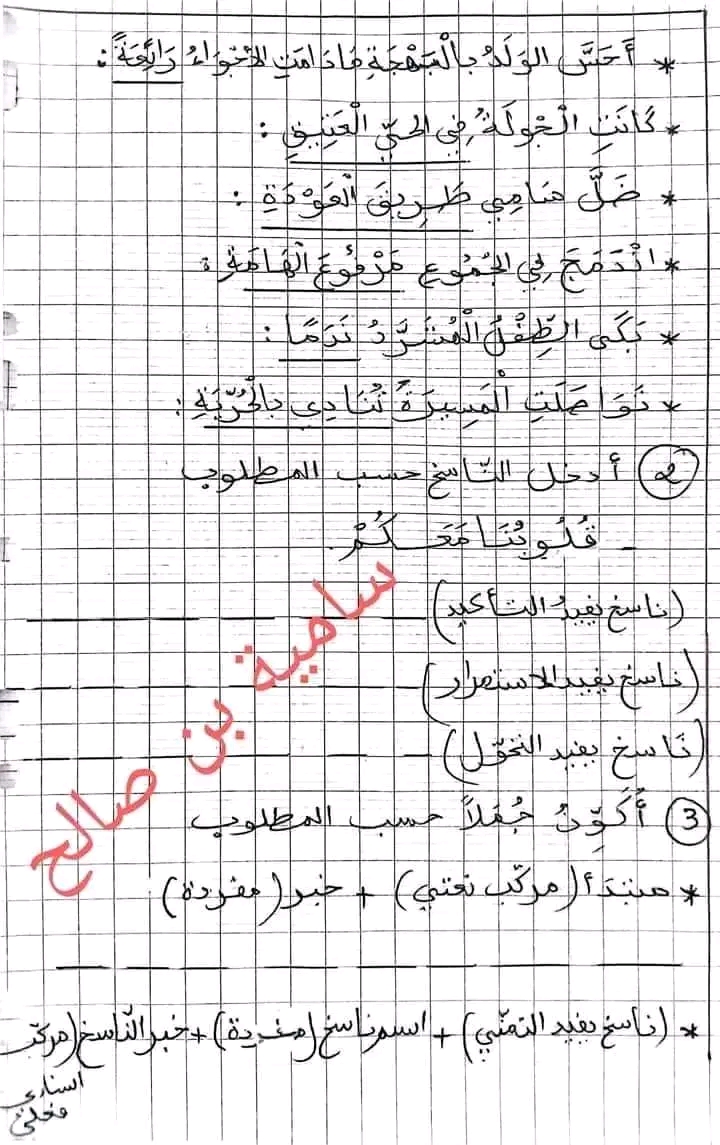 * أَحَسَّ الوَلَدُ بالْبَهْجَةِ مَادَامَتِ الأَجْوَاءُ رَائِعَةً :
* كَانَتِ الْجَوْلَةُ فِي الحَيِّ الْعَتِيقِ :
* ضَلَّ سَامِي طَرِيقَ الْعَوْدَةِ :
* انْدَمَجَ فِي الجُمُوعِ مَرْفُوعَ الْهَامَةِ :
* بَكَى الطِّفْلُ الْمُشَرَّدُ نَدَمًا :
* تَوَاصَلَتِ الْمَسِيرَةُ تُنَادِي بِالْحُرِّيَةِ :
② أدخل النّاسخ حسب المطلوب
- قُلُوبُنَا مَعَكُمْ.
(ناسخ يفيدُ التأكيد)
(ناسخ يفيد الاستمرار)
(نَاسخ يفيد التحَوّل)
③ أُكَوِّنُ جُمَلاً حسب المطلوب
* مبتدأ (مركّب نعتي) + خبر (مفردة)
* (ناسخ يفيد التمنّي) + اسم ناسخ (مفردة) + خبر النّاسخ (مركّب
اسنادي
فعلي)
سامية بن صالح